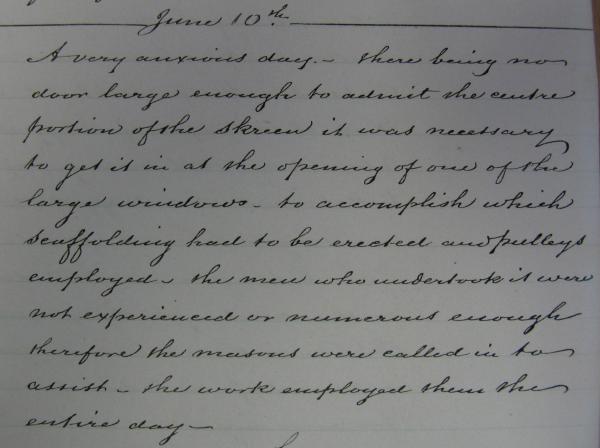 June 10th.
A very anxious day. - there being no
door large enough to admit the centre
portion of the skreen it was necessary
to get it in at the opening of one of the
large windows - to accomplish which
scaffolding had to be erected and pulleys
employed - the men who undertook it were
not experienced or numerous enough
therefore the masons were called in to
assist - the work employed them the
entire day -